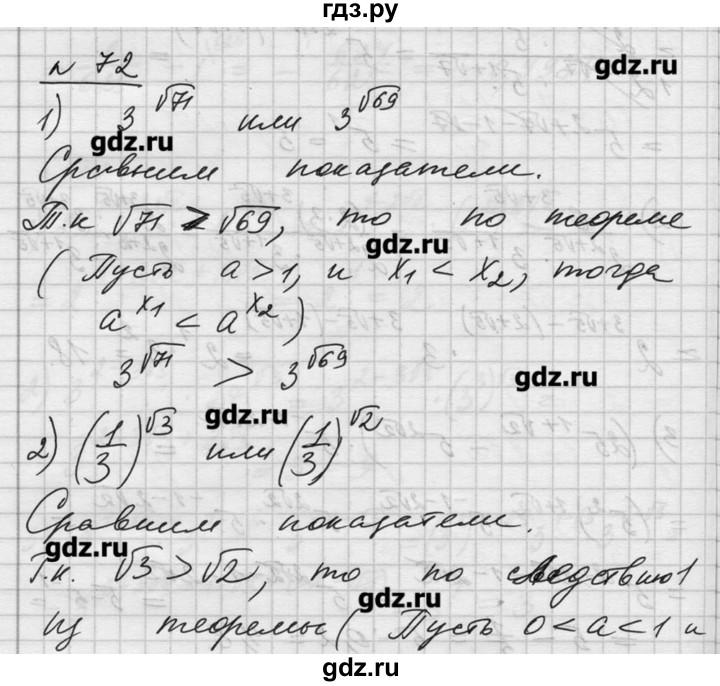 гдз.ру
gdz.ru
№ 72
1) 3^√71 или 3^√69
gdz.ru
Сравним показатели.
Т.к √71 > √69, то по теореме
gdz.ru
(Пусть a>1, и x₁ < x₂, тогда
a^x₁ < a^x₂)
3^√71 > 3^√69
gdz.ru
gdz.ru
2) (1/3)^√3 или (1/3)^√2
Сравним показатели.
gdz.ru
Т.к. √3 > √2, то по следствию 1
gdz.ru
из теоремы (Пусть 0<a<1 и
gdz.ru